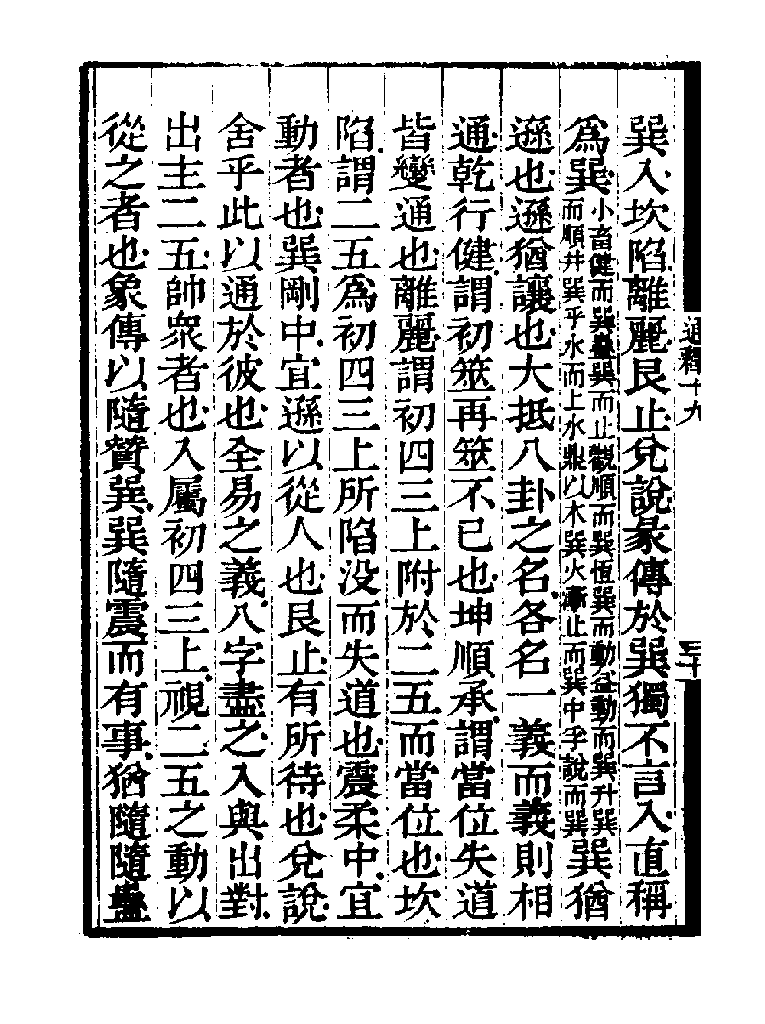 巽入坎陷離麗艮止兌說彖傳於巽獨不言入直稱
爲巽小畜健而巽蠱巽而止觀順而巽恆巽而動益動而巽升巽
而順井巽乎水而上水鼎以木巽火漸止而巽中孚說而巽巽猶
遜也遜猶讓也大抵八卦之名各名一義而義則相
通乾行健謂初筮再筮不已也坤順承謂當位失道
皆變通也離麗謂初四三上附於二五而當位也坎
陷謂二五爲初四三上所陷沒而失道也震柔中宜
動者也巽剛中宜遜以從人也艮止有所待也兌說
舍乎此以通於彼也全易之義八字盡之入與出對
出主二五帥眾者也入屬初四三上視二五之動以
從之者也象傳以隨贊巽巽隨震而有事猶隨隨蠱
通釋十九
三十